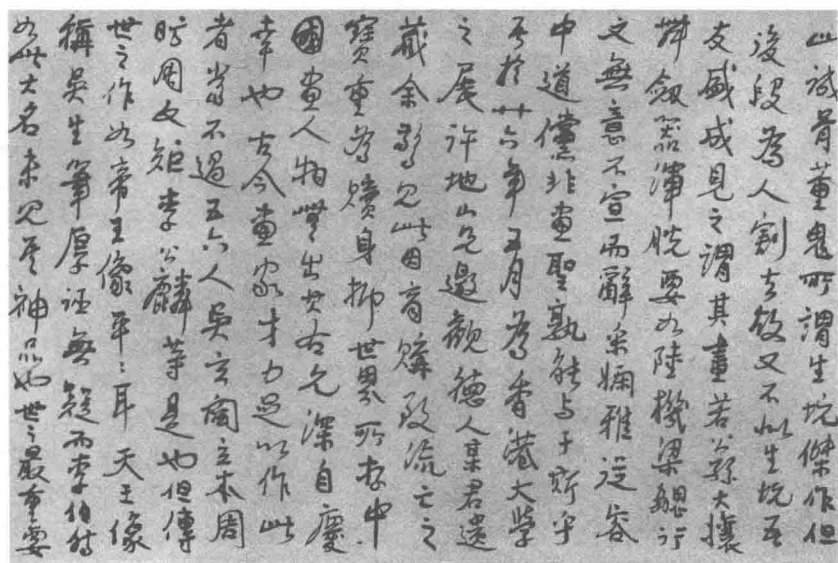 此誠骨董鬼所謂生坑傑作但
後段為人割去故又不似生坑吾
友盛成見之謂其畫若公孫大孃
舞劍器渾脫要如陸機梁鵠行
文無意不宣而辭采嫻雅從容
中道儻非畫聖孰能與于斯乎
吾於廿六年五月為香港大學
之展許地山兄邀觀德人某君遺
藏余驚見此因商購致流亡之
寶重為贖身抑世界所存中
國畫人物無出其右允深自慶
幸也古今畫家才力足以作此
者當不過五六人吳玄閻立本周
昉周文矩李公麟等是也但傳
世之作如帝王像平〻耳天王像
稱吳生筆厚誣無疑而李伯時
如此大名未見其神品也世之最重要